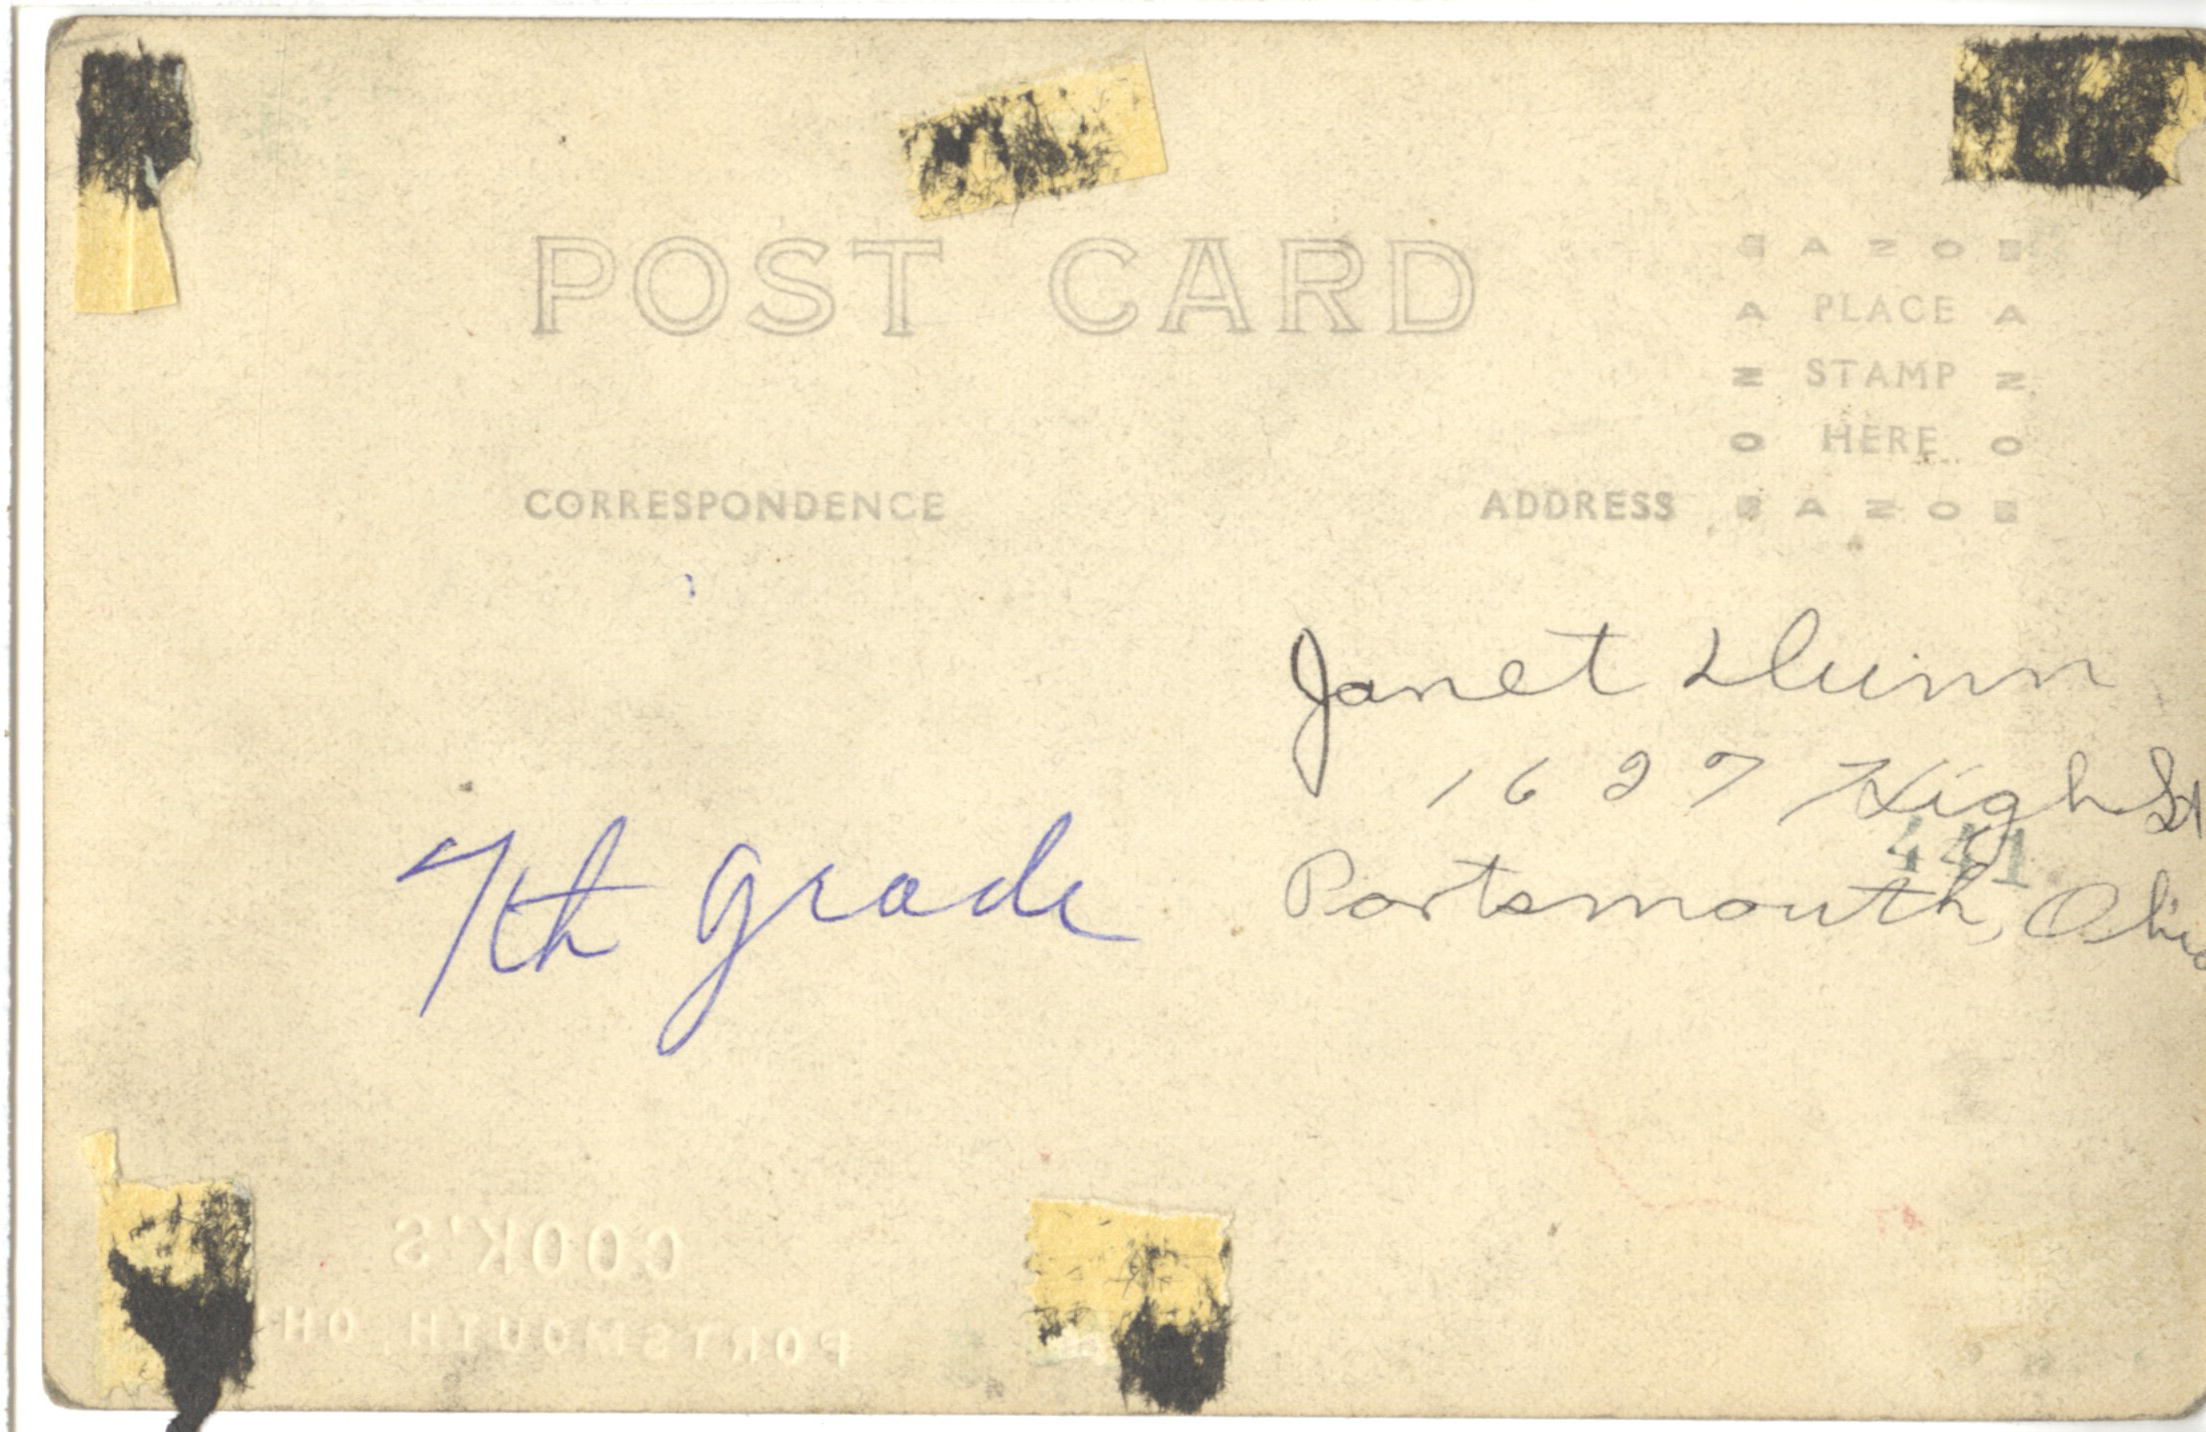 POST CARD
G A Z O E
A PLACE A
Z STAMP Z
O HERE O
CORRESPONDENCE
ADDRESS
Janet Dunn
1627 High St
441
Portsmouth, Ohio
7th grade
COOK'S
PORTSMOUTH, OH